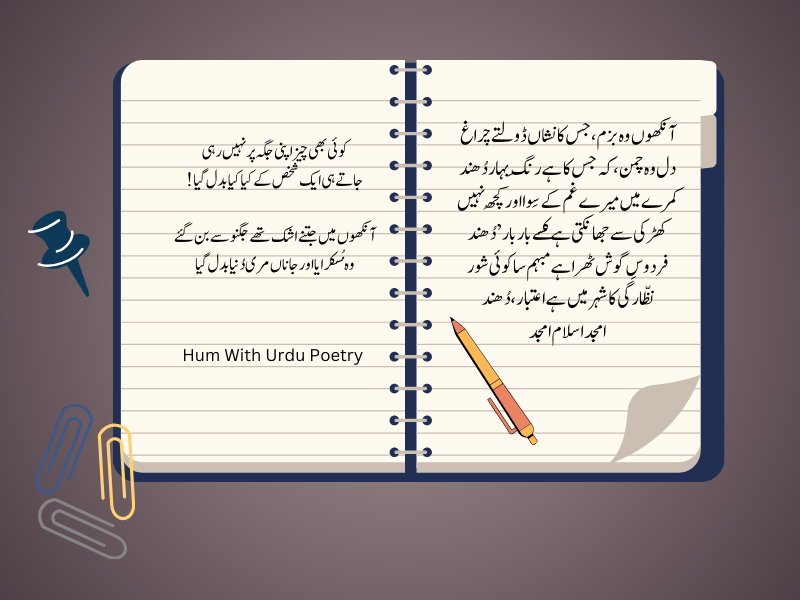 آنکھوں وہ بزم، جس کا نشاں ڈولتے چراغ
دل وہ چمن، کہ جس کا ہے رنگِ بہار دُھند
کمرے میں میرے غم کے سِوا اور کچھ نہیں
کھڑکی سے جھانکتی ہے کسے بار بار دُھند
فردوسِ گوش ٹھرا ہے مبہم سا کوئی شور
نظّارگی کا شہر میں ہے اعتبار، دُھند
امجد اسلام امجد
کوئی بھی چیز اپنی جگہ پر نہیں رہی
جاتے ہی ایک شخص کے کیا کیا بدل گیا!
آنکھوں میں جتنے اشک تھے جگنو سے بن گئے
وہ مُسکرایا اور جاناں مری دُنیا بدل گیا
Hum With Urdu Poetry